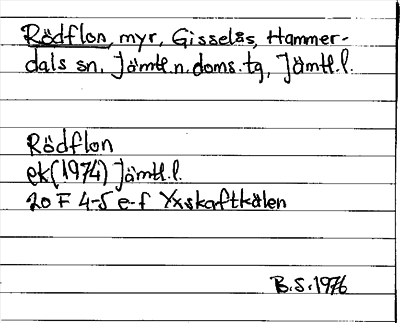 Rödflon, myr, Gisselås, Hammer-
dals sn, Jämtl.n.doms.tg, Jämtl.l.
Rödflon
ek(1974) Jämtl.l.
20 F 4-5 e-f Yxskaftkälen
B.S.1976